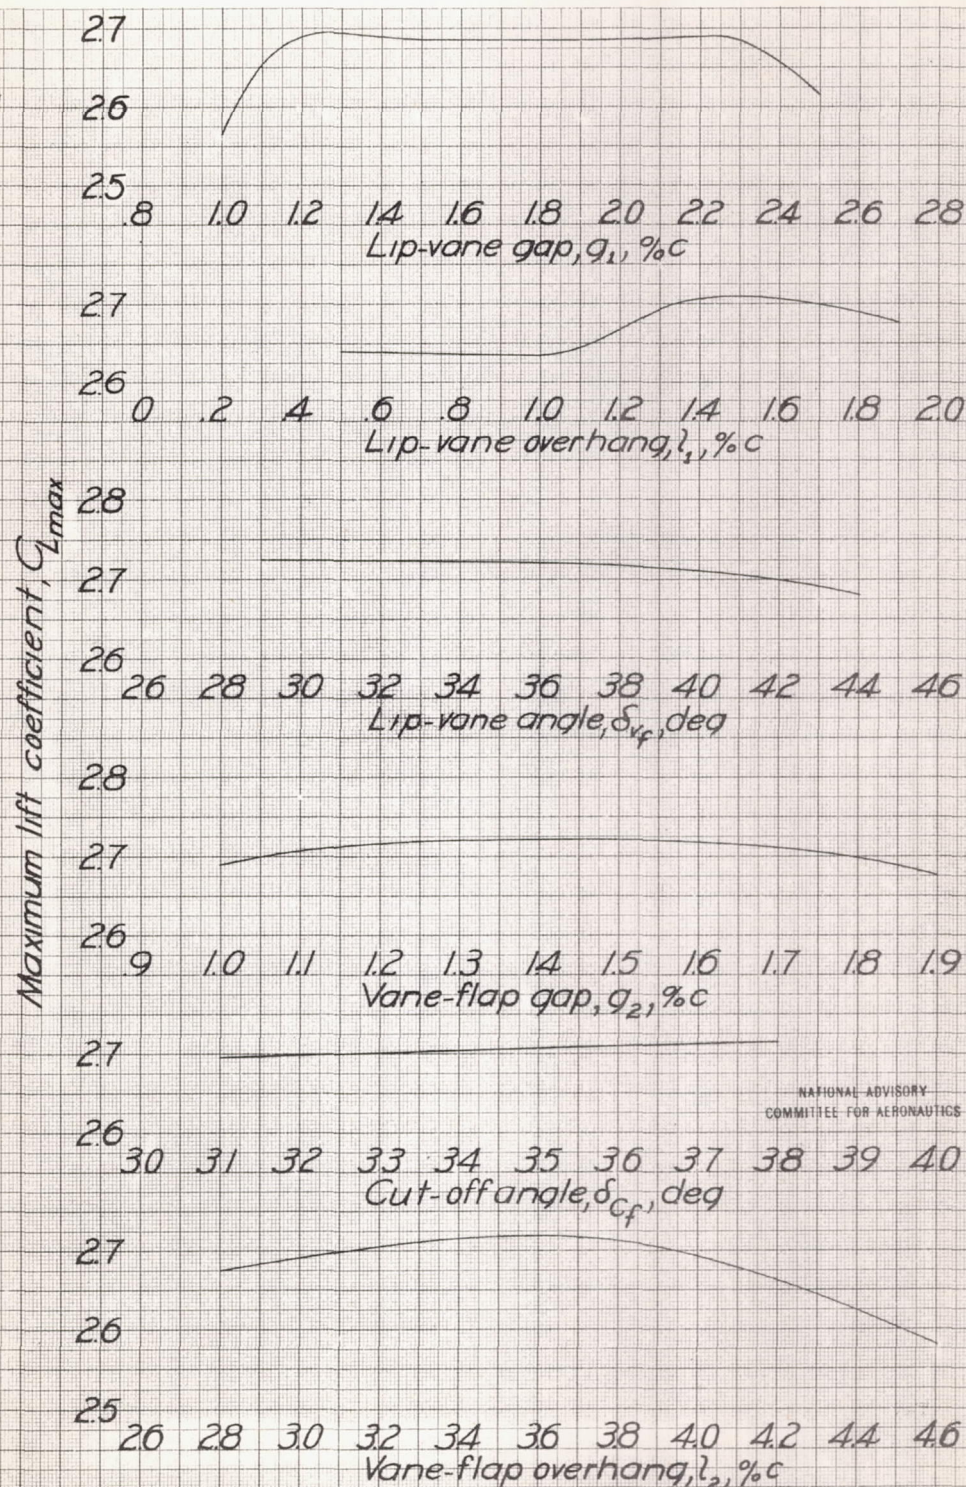 2.7
2.6
2.5
.8 1.0 1.2 1.4 1.6 1.8 2.0 2.2 2.4 2.6 2.8
Lip-vane gap, g₁, %c
2.7
2.6
0 .2 .4 .6 .8 1.0 1.2 1.4 1.6 1.8 2.0
Lip-vane overhang, l₁, %c
Maximum lift coefficient, C_Lmax
2.8
2.7
2.6
26 28 30 32 34 36 38 40 42 44 46
Lip-vane angle, δ_vf, deg
2.8
2.7
2.6
.9 1.0 1.1 1.2 1.3 1.4 1.5 1.6 1.7 1.8 1.9
Vane-flap gap, g₂, %c
2.7
NATIONAL ADVISORY
COMMITTEE FOR AERONAUTICS
2.6
30 31 32 33 34 35 36 37 38 39 40
Cut-off angle, δ_cf, deg
2.7
2.6
2.5
2.6 2.8 3.0 3.2 3.4 3.6 3.8 4.0 4.2 4.4 4.6
Vane-flap overhang, l₂, %c